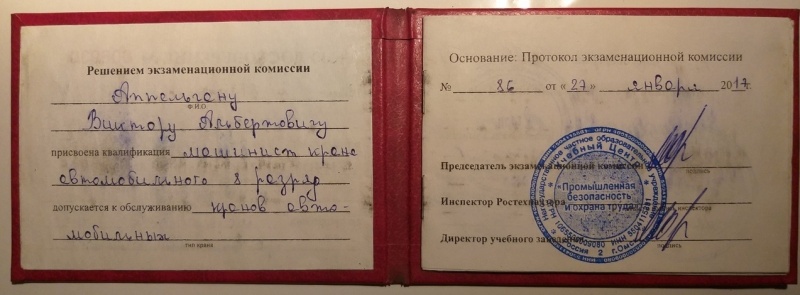 Решением экзаменационной комиссии
Аппельгану
Ф.И.О.
Виктору Альбертовичу
присвоена квалификация машинист крана
автомобильного 8 разряд
допускается к обслуживанию кранов авто-
мобильных
тип крана
Основание: Протокол экзаменационной комиссии
№ 86 от «27» января 2017г.
Председатель экзаменационной комиссии
подпись
Инспектор Ростехнадзора
инспектора
Директор учебного заведения
подпись
Учебный Центр
"Промышленная
безопасность
и охрана труда"
Россия г. Омск